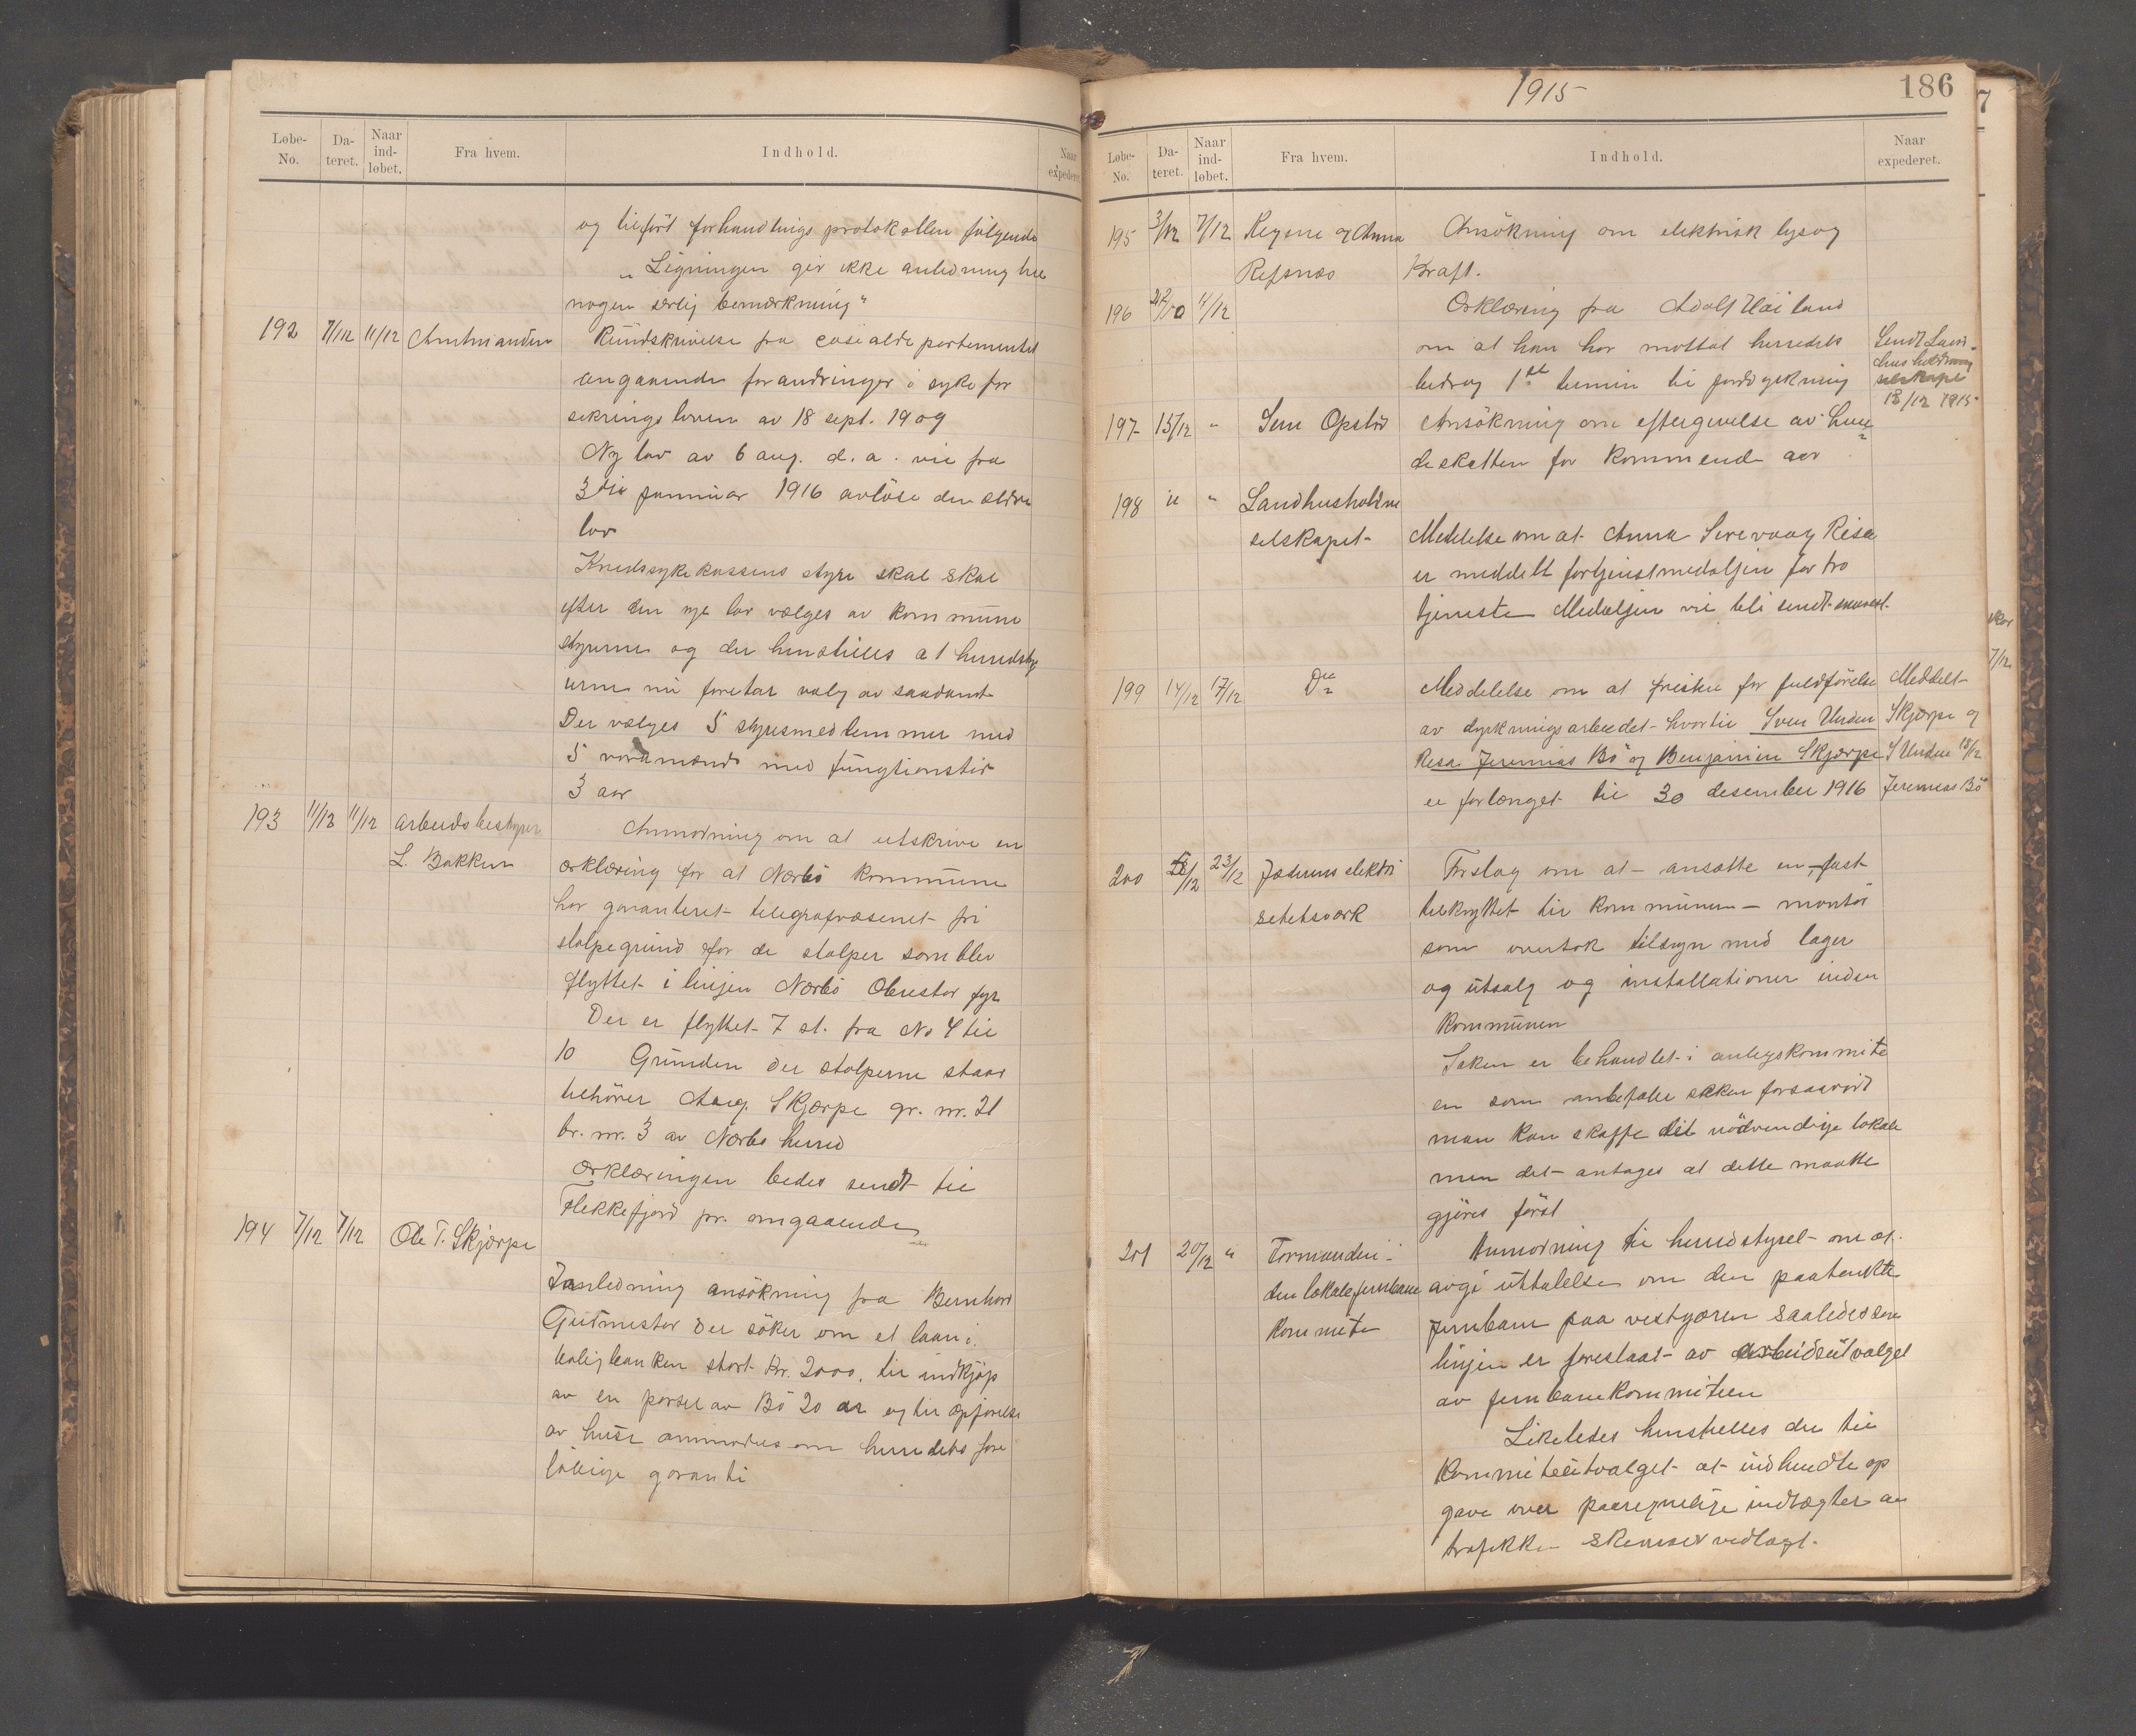 Løbe-No. Da-teret. Naar ind-løbet. Fra hvem. Indhold. Naar expederet.
og tilført forhandlings protokollen følgende
„Ligningen gir ikke anledning til
nogen særlig bemærkning"
192 7/12 11/12 Amtmanden Rundskrivelse fra
angaaende forandringer i syke for
sikrings loven av 18 sept. 1909
Ny lov av 6 aug. d.a. vil fra
3die januar 1916 avløse den ældre
lov
Kredssykekassens styre skal skal
efter den nye lov vælges av kommune
styrerne og der henstilles at herredsty
rerne nu foretar valg av saadant
Der vælges 5 styresmedlemmer med
5 varamænd med fungtionstid
3 aar
193 11/12 11/12 Arbeidsbestyrer Anmodning om at utskrive en
L. Bakken erklæring for at Nærbø kommune
har garanteret telegrafvæsenet fri
stolpegrund for de stolper som blev
flyttet i linjen Nærbø Obrestad fyr
Der er flyttet 7 st. fra No 4 til
10 Grunden der stolperne staar
tilhører Aag. Skjærpe gr. nr. 21
br. nr. 3 av Nærbø herred
Erklæringen bedes sendt til
Flekkefjord pr. omgaaende
194 7/12 7/12 Ole T. Skjærpe
I anledning ansökning fra Bernhard
Gudmestad der søker om et laan i
boligbanken stort kr. 2000, til indkjøp
av en parsel av Bö 20 ar og til opførelse
av huse anmodes om herredets fore
løbige garanti
1915 186
Løbe-No. Da-teret. Naar ind-løbet. Fra hvem. Indhold. Naar expederet.
195 3/12 7/12 Regine og Anna Ansökning om elektrisk lys og
Refsnæs Kraft.
196 11/12 Erklæring fra Adolf Häiland
om at han har mottat herredets Sendt Land-
bidrag 1ste termin til jorddyrkning husholdning selskapet
18/12 1915
197 15/12 " Sem Opstad Ansökning om eftergivelse av Hun
deskatten for kommende aar
198 " " Landhusholdne
selskapet Meddelelse om at Anna Sirevaag Risa
er meddelt fortjenstmedaljen for tro
tjeneste Medaljen vil bli sendt snarest.
199 14/12 17/12 Do Meddelelse om at fristen for fuldförelse Meddelt
av dyrkningsarbeidet hvortil Sven Unden Skjærpe og
Risa Jeremias Bö og Benjamin Skjærpe S Unden 18/12
er forlænget til 30 desember 1916 Jeremias Bö
200 23/12 Jæderens elektri Forslag om at ansætte en fast
setetsværk tilknyttet til kommunen – montör
som overtok tilsyn med lager
og utsalg og installationer inden
kommunen
Saken er behandlet i anlegskommite
en som anbefaler sakken forsaavidt
man kan skaffe det nödvendige lokale
men det antages at dette maatte
gjøres først
201 20/12 " Formanden i Anmodning til herredstyret om at
den lokale jernbane avgi uttalelse om den paatænkte
kommite jernbane paa vestjæren saaledes som
linjen er foreslaat av arbeidsutvalget
av jernbanekommiteen
Likeledes henstilles der til
kommiteutvalget at indhendte op
gave over paaregnelige indtægter av
trafikken skema er vedlagt.